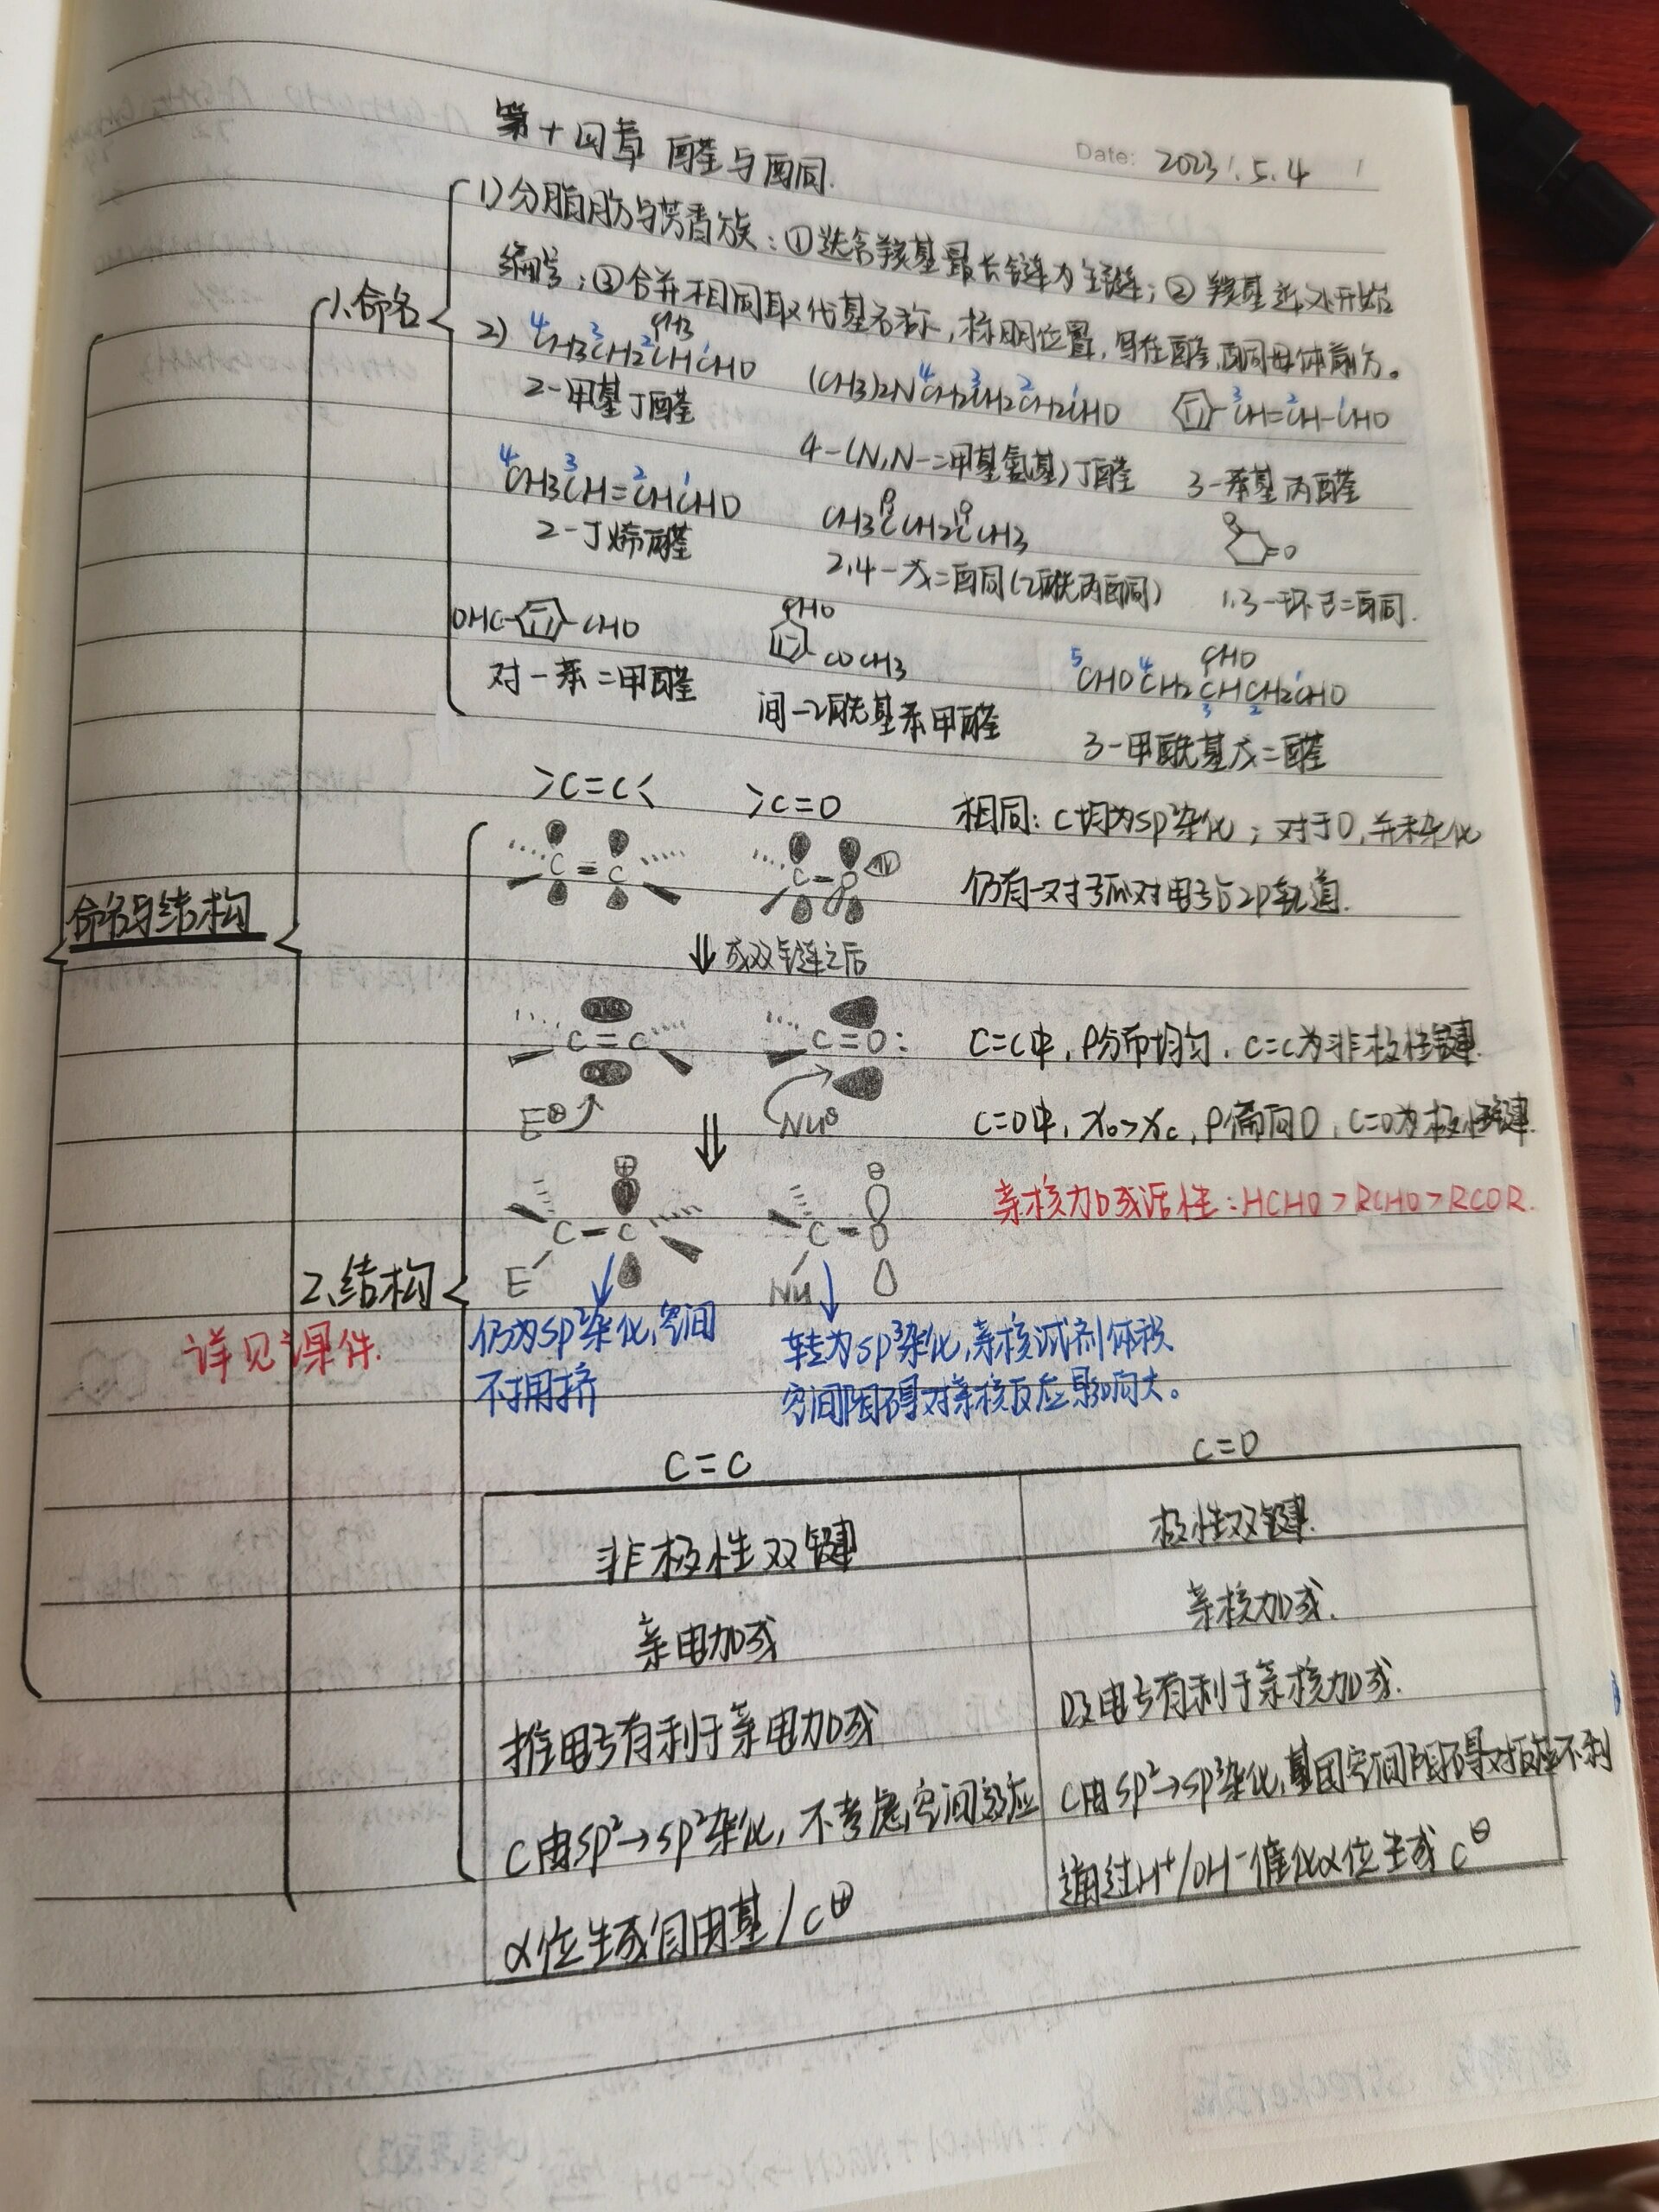 第十四章 醛与酮.
Date: 2023.5.4
命名与结构
1.命名
1)分脂肪与芳香族:①选含羰基最长链为主链;②羰基近处开始
编号;③合并相同取代基名称,标明位置,写在醛,酮母体前方。
2) CH3CH2CHCHO
CH3
4 3 2 1
2-甲基丁醛
(CH3)2NCH2CH2CH2CHO
4 3 2 1
4-(N,N-二甲基氨基)丁醛
CH=CH-CHO
3 2 1
3-苯基丙醛
CH3CH=CHCHO
4 3 2 1
2-丁烯醛
CH3CCH2CCH3
O O
2,4-戊二酮(乙酰丙酮)
O =O
1,3-环己二酮.
OHC- -CHO
对-苯二甲醛
CHO
COCH3
间-乙酰基苯甲醛
CHO
CHOCH2CHCH2CHO
5 4 3 2 1
3-甲酰基戊二醛
2.结构
详见课件.
>C=C< >C=O
相同: C均为sp²杂化; 对于O,并未杂化
C=C C-O
仍有一对孤对电子占2p轨道.
⇓ 成双键之后
C=C C=O:
C=C中, ρ分布均匀, C=C为非极性键.
E⊕ Nu⊖
C=O中, χo>χc, ρ偏向O, C=O为极性键.
⊕ ⊖
亲核加成活性: HCHO>RCHO>RCOR.
C-C C-O
E Nu
仍为sp²杂化,空间
不拥挤
转为sp³杂化,亲核试剂体积
空间阻碍对亲核反应影响大。
C=C C=O
非极性双键 极性双键.
亲电加成 亲核加成.
推电子有利于亲电加成 吸电子有利于亲核加成.
C由sp²→sp²杂化, 不考虑空间效应 C由sp²→sp³杂化,基团空间阻碍对反应不利
α位生成自由基/C⊕ 通过H⁺/OH⁻催化α位生成C⊖